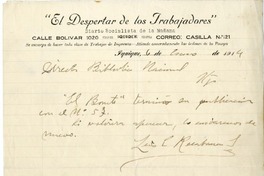 "El Despertar de los Trabajadores"
Diario Socialista de la Mañana
CALLE BOLIVAR 1020 IQUIQUE CORREO: CASILLA Nº 21
Se encarga de hacer toda clase de Trabajos de Imprenta
Iquique, de Enero de 1914
Director Biblioteca Nacional
"El Bonete" terminó su publicación
con el Nº 52.
Si volviera aparecer, le avisaremos de
nuevo.
Luis E. Recabarren S.